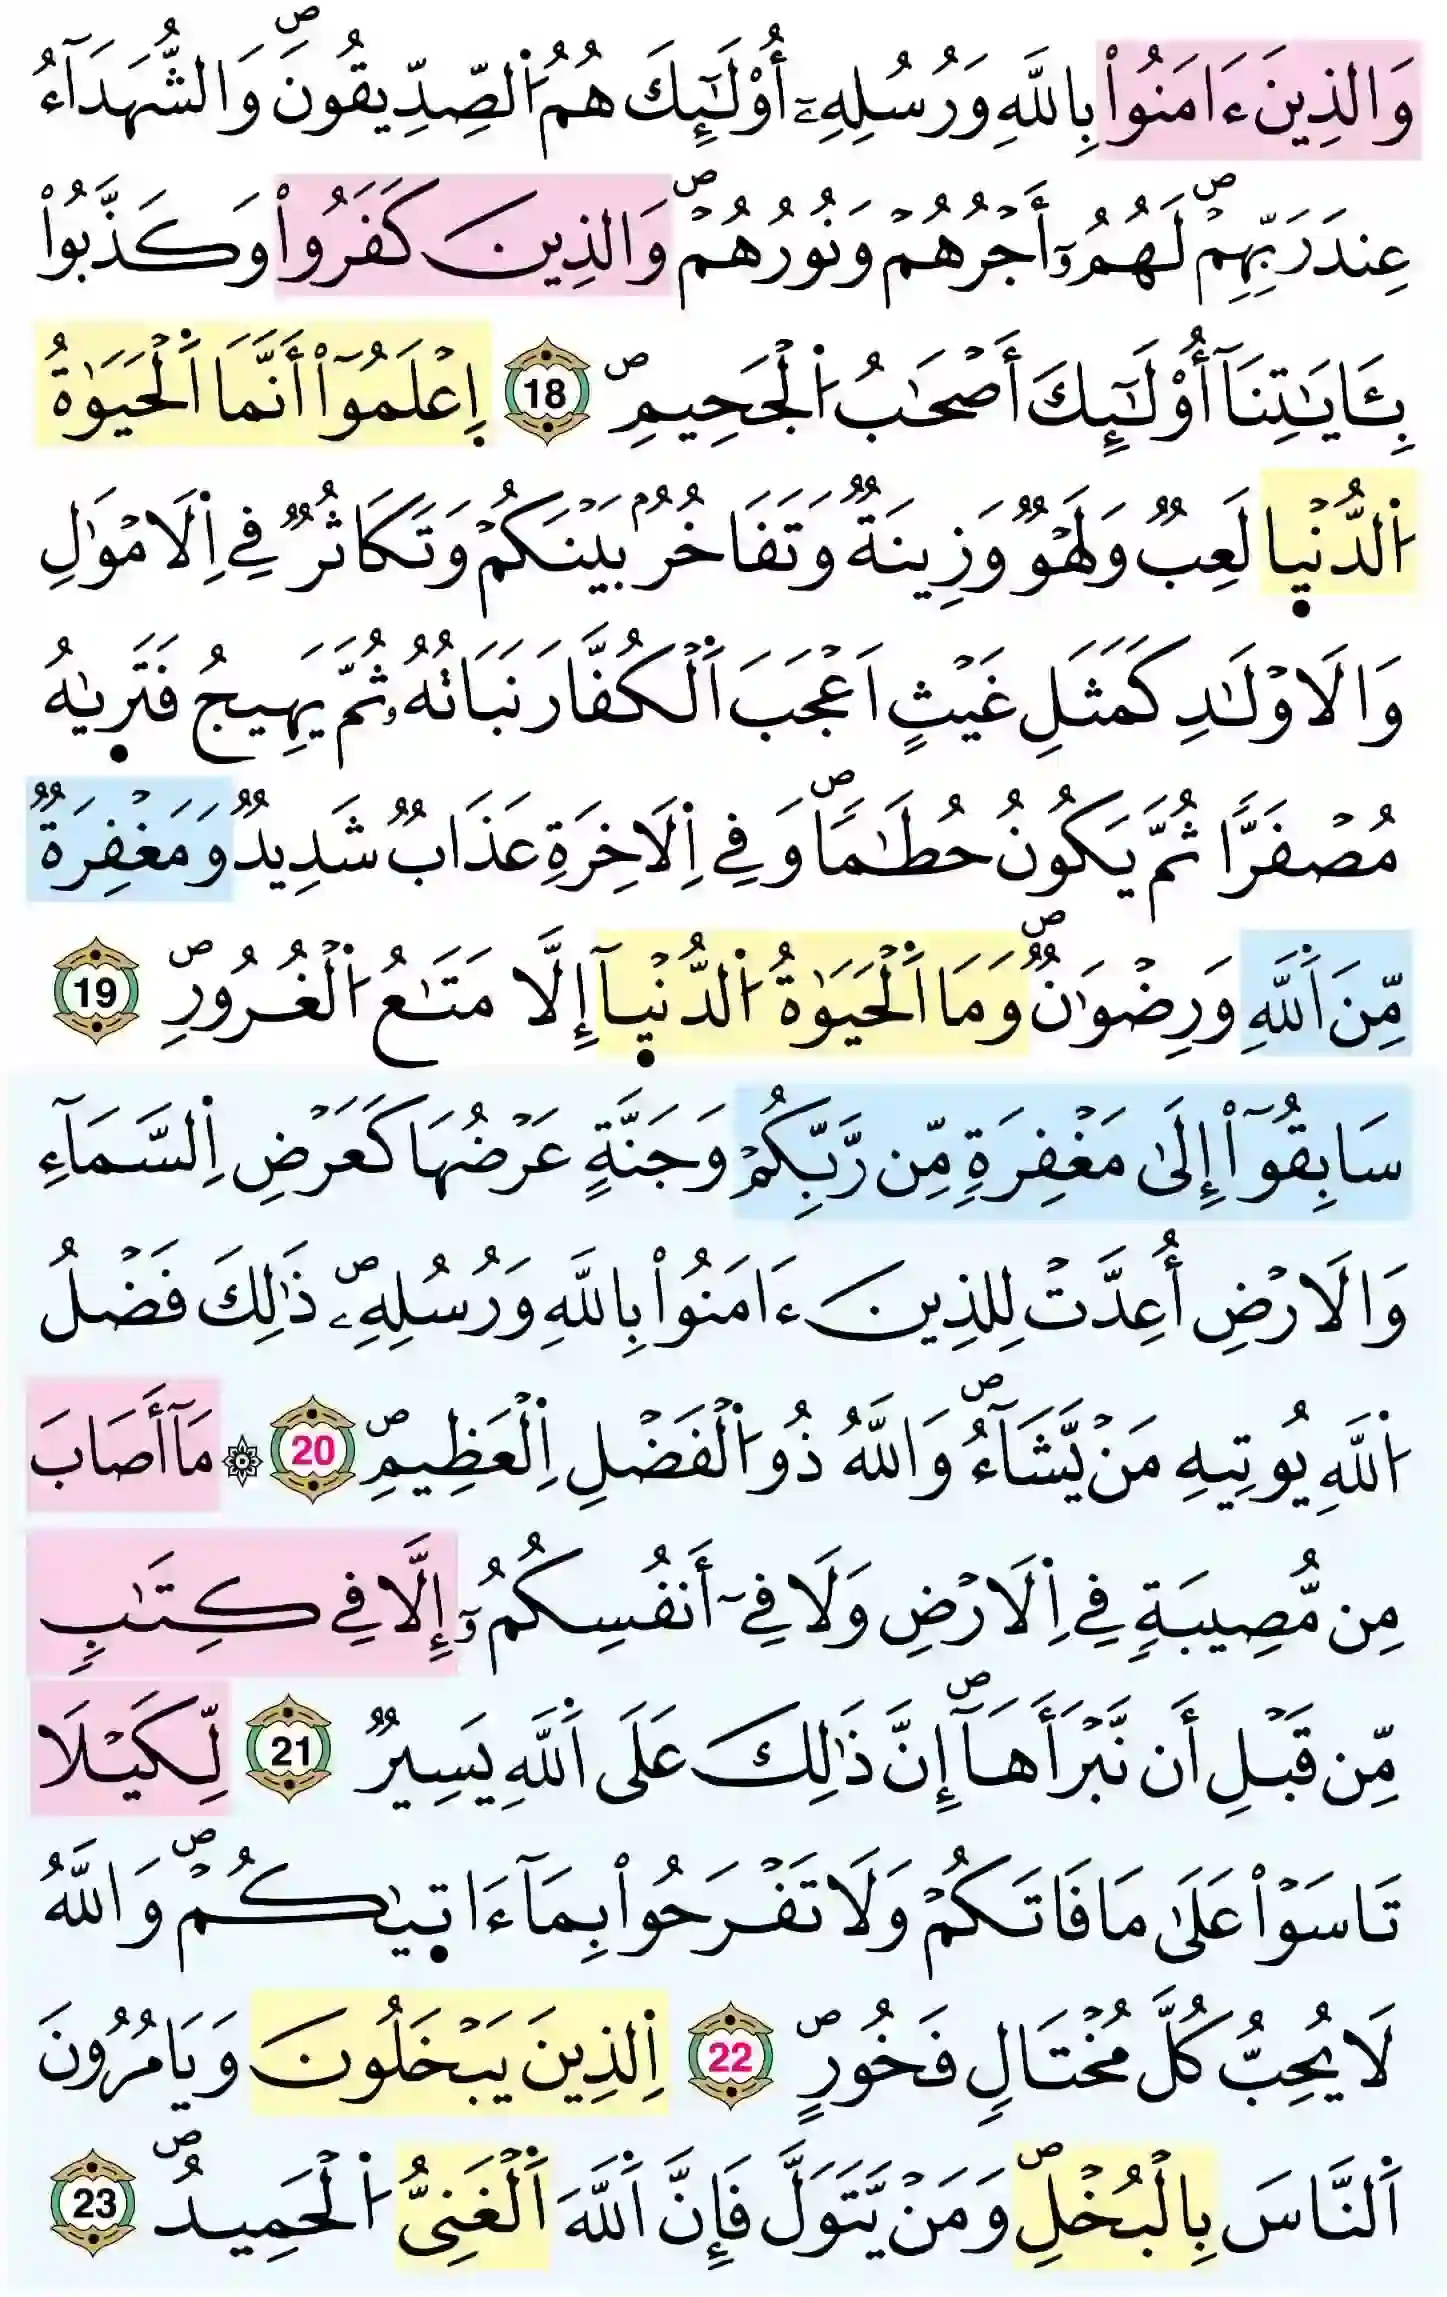 وَالذِينَ ءَامَنُواْ بِاللَّهِ وَرُسُلِهِۦٓ أُوْلَٰٓئِكَ هُمُ اُ۬لصِّدِّيقُونَۖ وَالشُّهَدَآءُ
عِندَ رَبِّهِمْۖ لَهُمُۥٓ أَجْرُهُمْ وَنُورُهُمْۖ وَالذِينَ كَفَرُواْ وَكَذَّبُواْ
بِـَٔايَٰتِنَآ أُوْلَٰٓئِكَ أَصْحَٰبُ اُ۬لْجَحِيمِۖ 18 اِ۪عْلَمُوٓاْ أَنَّمَا اَ۬لْحَيَوٰةُ
اُ۬لدُّنْي۪ا لَعِبٌ وَلَهْوٌ وَزِينَةٌ وَتَفَاخُرٌۢ بَيْنَكُمْ وَتَكَاثُرٌ فِے اِ۬لَامْوَٰلِ
وَالَاوْلَٰدِ كَمَثَلِ غَيْثٍ اَعْجَبَ اَ۬لْكُفَّارَ نَبَاتُهُۥ ثُمَّ يَهِيجُ فَتَر۪يٰهُ
مُصْفَرّاً ثُمَّ يَكُونُ حُطَٰماًۖ وَفِے اِ۬لَاخِرَةِ عَذَابٌ شَدِيدٌ وَمَغْفِرَةٌ
مِّنَ اَ۬للَّهِ وَرِضْوَٰنٌۖ وَمَا اَ۬لْحَيَوٰةُ اُ۬لدُّنْي۪آ إِلَّا مَتَٰعُ اُ۬لْغُرُورِۖ 19
سَابِقُوٓاْ إِلَىٰ مَغْفِرَةٍ مِّن رَّبِّكُمْ وَجَنَّةٍ عَرْضُهَا كَعَرْضِ اِ۬لسَّمَآءِ
وَالَارْضِ أُعِدَّتْ لِلذِينَ ءَامَنُواْ بِاللَّهِ وَرُسُلِهِۦۖ ذَٰلِكَ فَضْلُ
اُ۬للَّهِ يُوتِيهِ مَنْ يَّشَآءُۖ وَاللَّهُ ذُو اُ۬لْفَضْلِ اِ۬لْعَظِيمِۖ 20 ۞ مَآ أَصَابَ
مِن مُّصِيبَةٍ فِے اِ۬لَارْضِ وَلَا فِےٓ أَنفُسِكُمُۥٓ إِلَّا فِے كِتَٰبٍ
مِّن قَبْلِ أَن نَّبْرَأَهَآۖ إِنَّ ذَٰلِكَ عَلَى اَ۬للَّهِ يَسِيرٌ 21 لِّكَيْلَا
تَاسَوْاْ عَلَىٰ مَا فَاتَكُمْ وَلَا تَفْرَحُواْ بِمَآ ءَات۪يٰكُمْۖ وَاللَّهُ
لَا يُحِبُّ كُلَّ مُخْتَالٍ فَخُورٍۖ 22 اِ۬لذِينَ يَبْخَلُونَ وَيَامُرُونَ
اَ۬لنَّاسَ بِالْبُخْلِۖ وَمَنْ يَّتَوَلَّ فَإِنَّ اَ۬للَّهَ اَ۬لْغَنِيُّ اُ۬لْحَمِيدُۖ 23